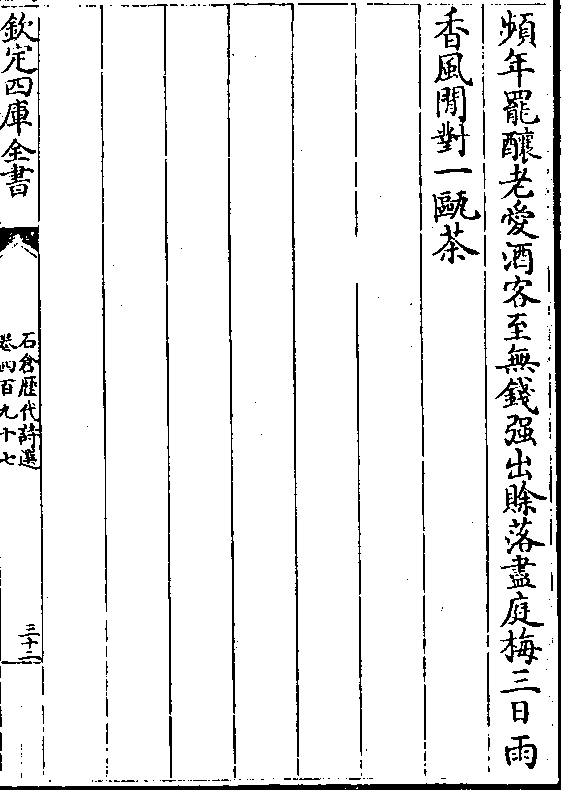 頻年罷釀老愛酒客至無錢强出賖落盡庭梅三日雨
香風閒對一甌茶
欽定四庫全書
石倉歴代詩選
卷四百九十七
三十二